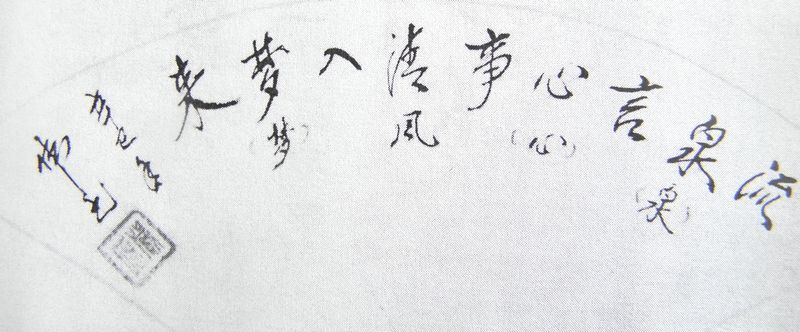 流
泉(泉)
言
心(心)
事
清风
入
梦(梦)
来